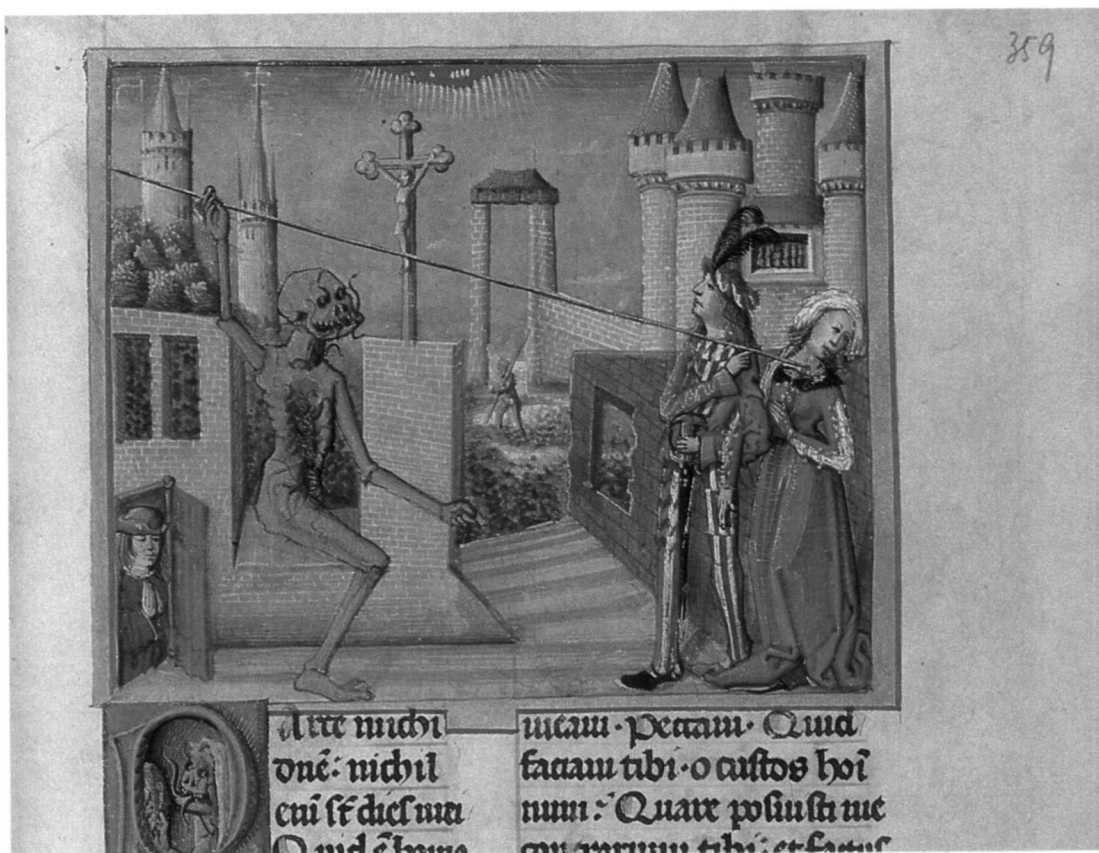 359
Parce michi
dn̄e: nichil
eni̅ st̅ dies mei
Quid ē homo
uicaui. Peccaui. Quid
faciam tibi. o custos hoi̅
num: Quare posuisti me
contrarium tibi: et factus